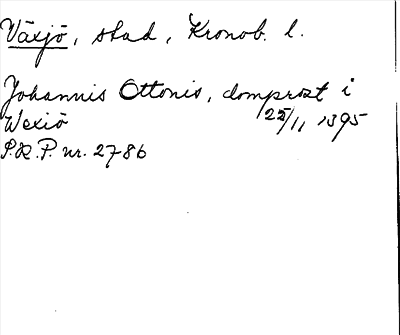 Växjö, stad, Kronob. l.
Johannis Ottonis, domprost i
Wexiö 25/11 1395
P.R.P. nr. 2786